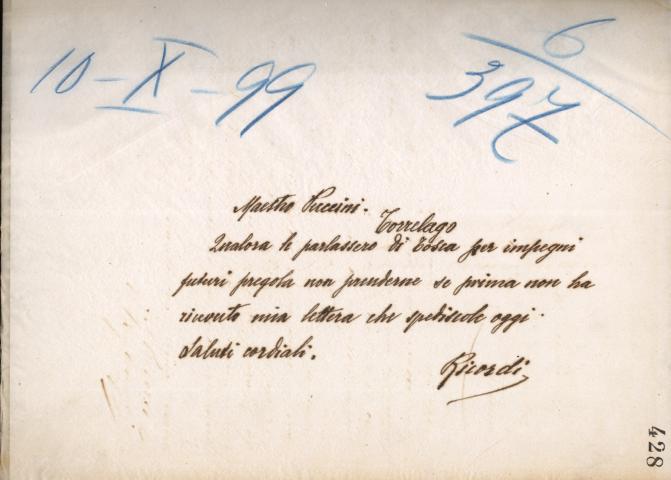 10-X-99
6
397
Maestro Puccini.
Torrelago
Qualora le parlassero di Tosca per impegni
futuri pregola non prenderne se prima non ha
ricevuto mia lettera che spediscole oggi.
Saluti cordiali.
Ricordi
428